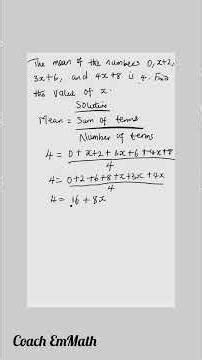 The mean of the numbers 0, x+2,
3x+6, and 4x+8 is 4. Find
the value of x.
Solution
Mean = Sum of terms
Number of terms
4 = 0 + x+2 + 3x+6 + 4x+8
4
4 = 0+2+6+8+x+3x+4x
4
4 = 16 + 8x
Coach EmMath